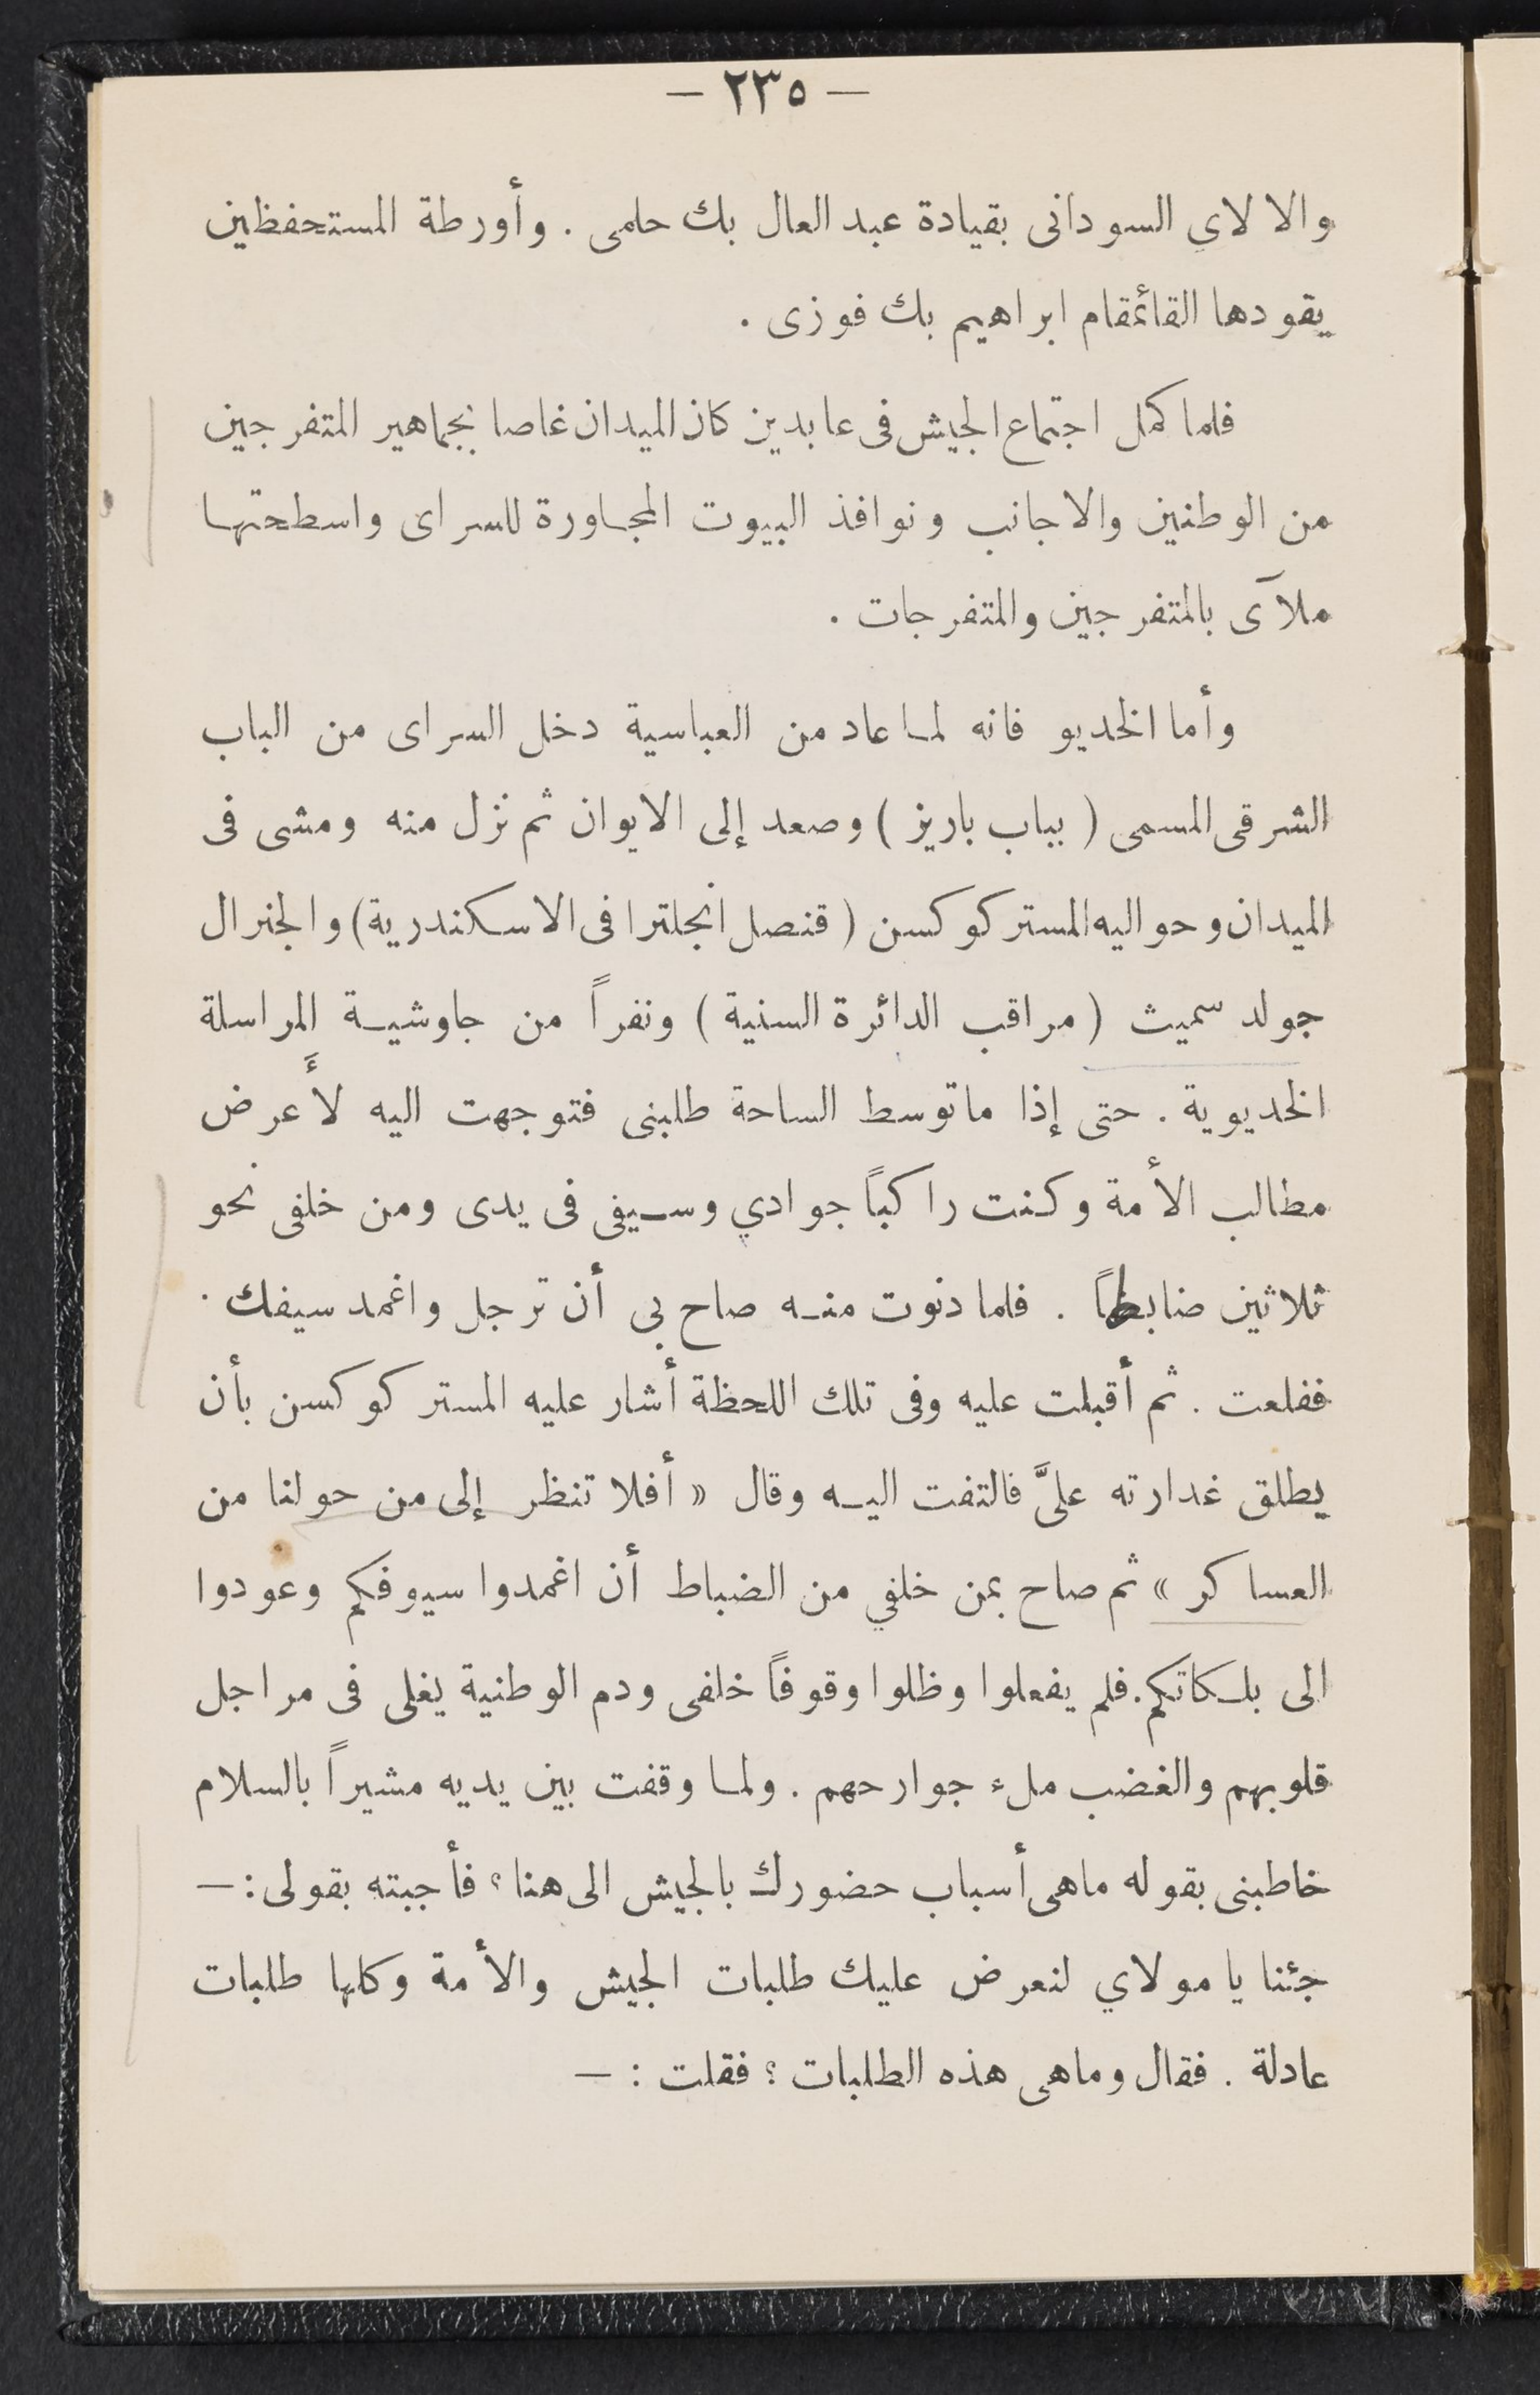 — ٢٣٥ —
والالاي السودانى بقيادة عبد العال بك حلمى . وأورطة المستحفظين
يقودها القائمقام ابراهيم بك فوزى .
فلما كمل اجتماع الجيش فى عابدين كان الميدان غاصا بجماهير المتفرجين
من الوطنين والاجانب ونوافذ البيوت المجاورة للسراى واسطحتها
ملآى بالمتفرجين والمتفرجات .
وأما الخديو فانه لما عاد من العباسية دخل السراى من الباب
الشرقى المسمى ( بباب باريز ) وصعد إلى الايوان ثم نزل منه ومشى فى
الميدان وحواليه المستر كوكسن ( قنصل انجلترا فى الاسكندرية ) والجنرال
جولد سميث ( مراقب الدائرة السنية ) ونفراً من جاوشية المراسلة
الخديوية . حتى إذا ماتوسط الساحة طلبنى فتوجهت اليه لأَعرض
مطالب الأمة وكنت راكباً جوادي وسيفى فى يدى ومن خلفى نحو
ثلاثين ضابطاً . فلما دنوت منه صاح بى أن ترجل واغمد سيفك .
ففلعت . ثم أقبلت عليه وفى تلك اللحظة أشار عليه المستر كوكسن بأن
يطلق غدارته علىَّ فالتفت اليه وقال « أفلا تنظر إلى من حولنا من
العساكر » ثم صاح بمن خلفي من الضباط أن اغمدوا سيوفكم وعودوا
الى بلكاتكم. فلم يفعلوا وظلوا وقوفاً خلفى ودم الوطنية يغلى فى مراجل
قلوبهم والغضب ملء جوارحهم . ولما وقفت بين يديه مشيراً بالسلام
خاطبنى بقوله ماهى أسباب حضورك بالجيش الى هنا ؟ فأجبته بقولى : —
جئنا يا مولاي لنعرض عليك طلبات الجيش والأمة وكلها طلبات
عادلة . فقال وماهى هذه الطلبات ؟ فقلت : —